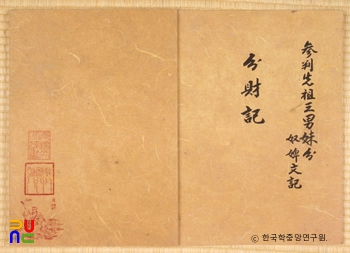 參判先祖三男妹分
奴婢文記
分財記
© 한국학중앙연구원.